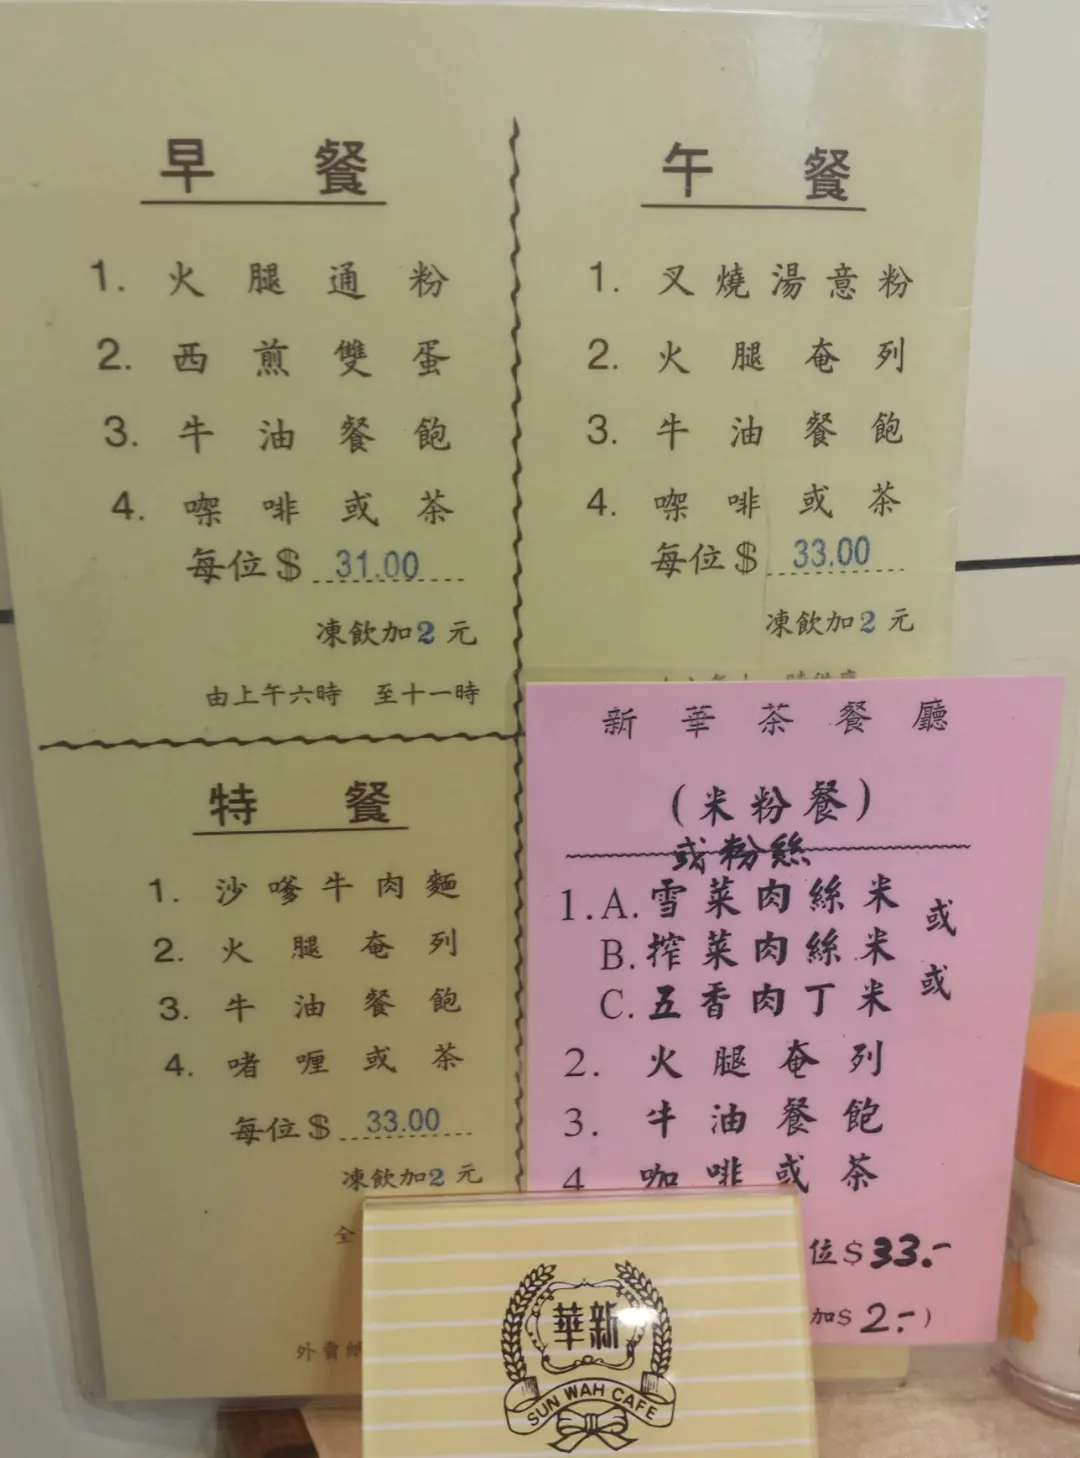 早餐
1. 火腿通粉
2. 西煎雙蛋
3. 牛油餐飽
4. 㗎啡或茶
每位$ 31.00
凍飲加2元
由上午六時 至十一時
午餐
1. 叉燒湯意粉
2. 火腿奄列
3. 牛油餐飽
4. 㗎啡或茶
每位$ 33.00
凍飲加2元
特餐
1. 沙嗲牛肉麵
2. 火腿奄列
3. 牛油餐飽
4. 啫喱或茶
每位$ 33.00
凍飲加2元
全
外賣
新華茶餐廳
(米粉餐)
或粉絲
1. A. 雪菜肉絲米 或
B. 搾菜肉絲米 或
C. 五香肉丁米
2. 火腿奄列
3. 牛油餐飽
4 咖啡或茶
位$33.-
加$2.-)
華新
SUN WAH CAFE